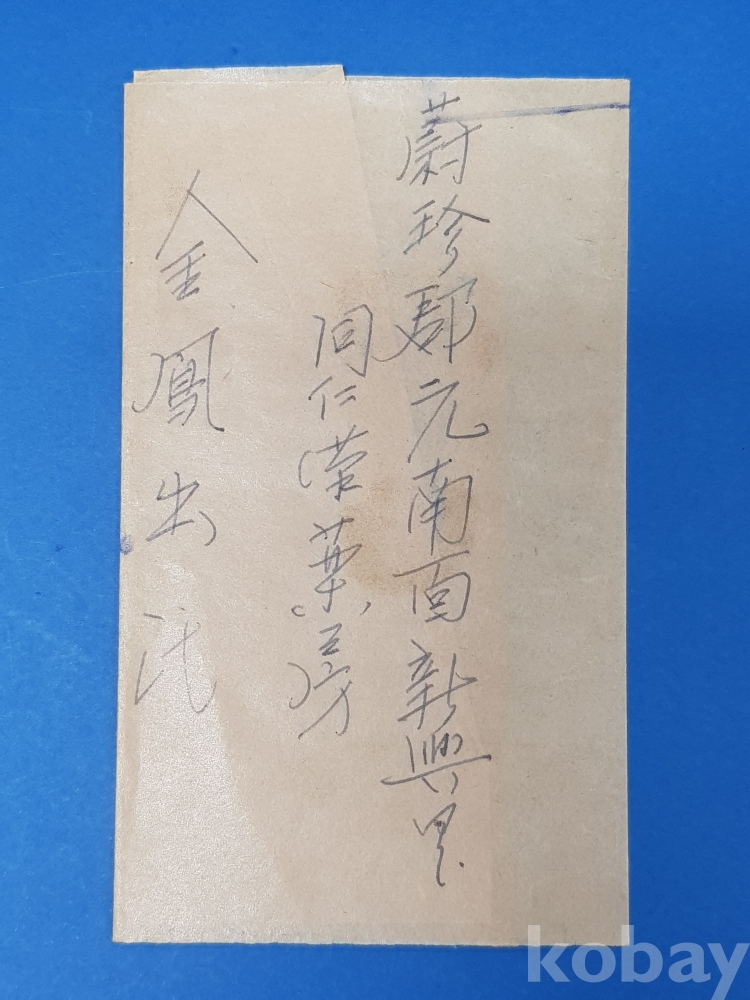 蔚珍郡元南面新興里
同仁荣薬房
金鳳出氏
kobay